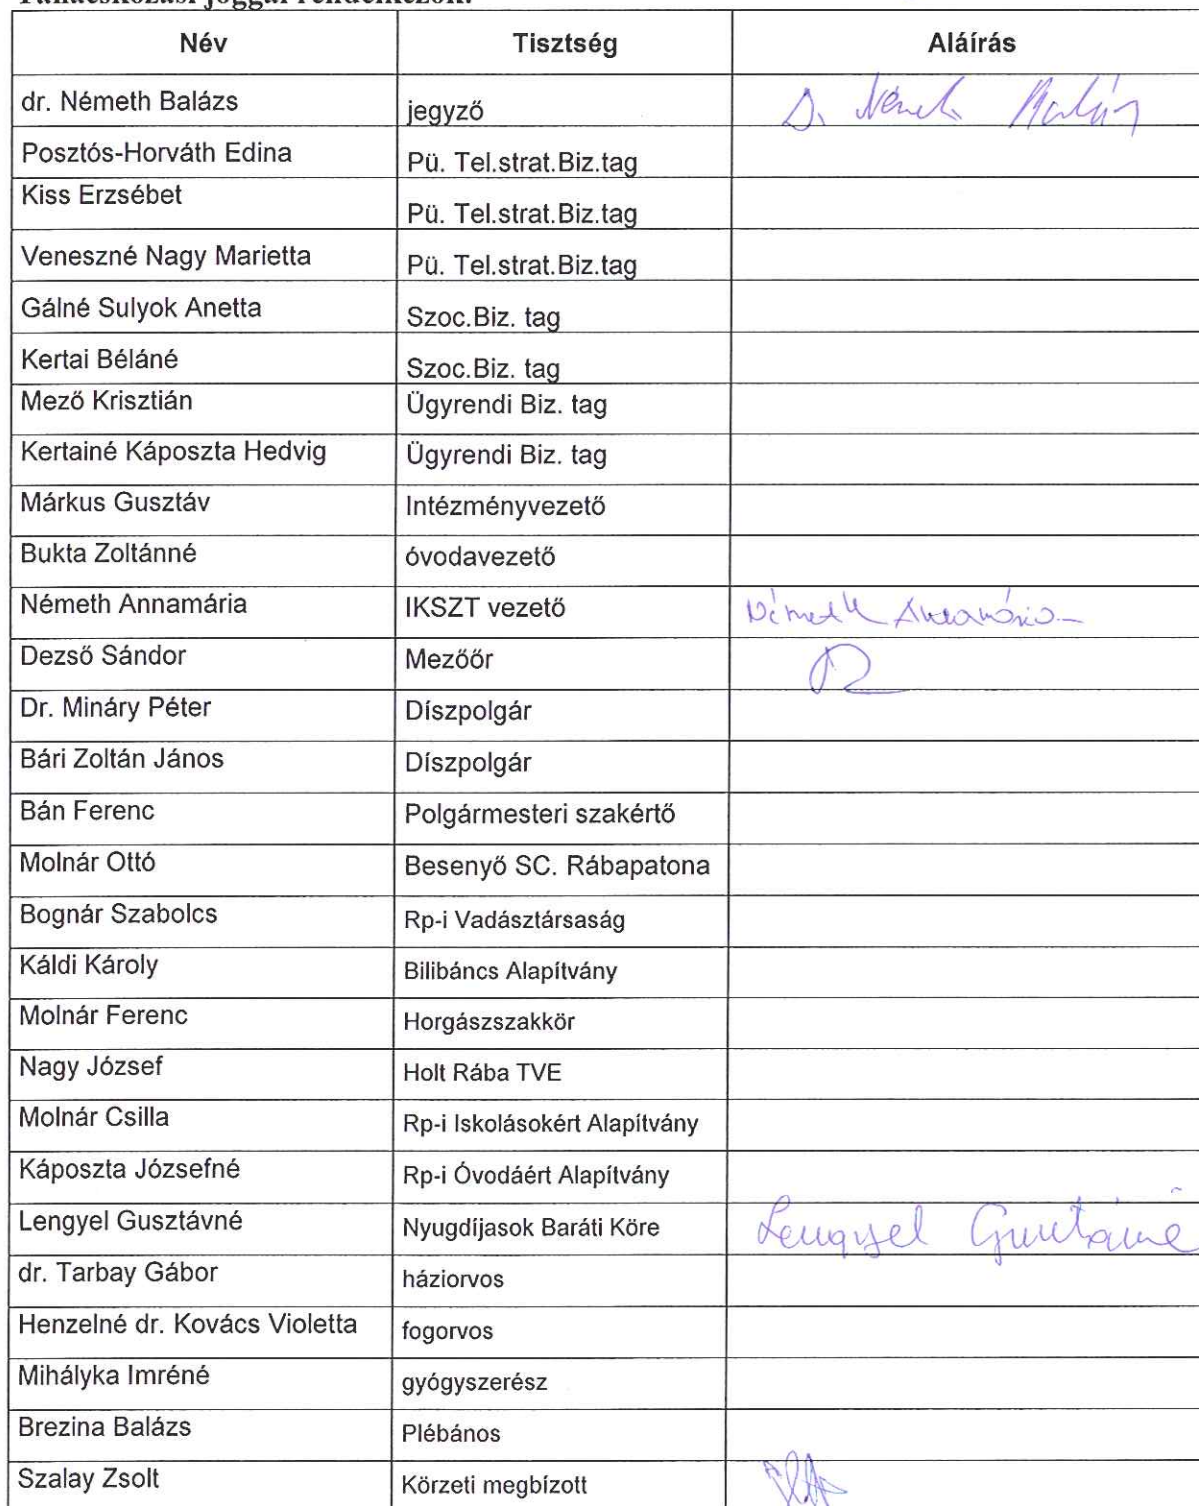 Tanácskozási joggal rendelkezők:
Név Tisztség Aláírás
dr. Németh Balázs jegyző D. Németh Balázs
Posztós-Horváth Edina Pü. Tel.strat.Biz.tag
Kiss Erzsébet Pü. Tel.strat.Biz.tag
Veneszné Nagy Marietta Pü. Tel.strat.Biz.tag
Gálné Sulyok Anetta Szoc.Biz. tag
Kertai Béláné Szoc.Biz. tag
Mező Krisztián Ügyrendi Biz. tag
Kertainé Káposzta Hedvig Ügyrendi Biz. tag
Márkus Gusztáv Intézményvezető
Bukta Zoltánné óvodavezető
Németh Annamária IKSZT vezető Németh Annamária
Dezső Sándor Mezőőr
Dr. Mináry Péter Díszpolgár
Bári Zoltán János Díszpolgár
Bán Ferenc Polgármesteri szakértő
Molnár Ottó Besenyő SC. Rábapatona
Bognár Szabolcs Rp-i Vadásztársaság
Káldi Károly Bilibáncs Alapítvány
Molnár Ferenc Horgászszakkör
Nagy József Holt Rába TVE
Molnár Csilla Rp-i Iskolásokért Alapítvány
Káposzta Józsefné Rp-i Óvodáért Alapítvány
Lengyel Gusztávné Nyugdíjasok Baráti Köre Lengyel Gusztávné
dr. Tarbay Gábor háziorvos
Henzelné dr. Kovács Violetta fogorvos
Mihályka Imréné gyógyszerész
Brezina Balázs Plébános
Szalay Zsolt Körzeti megbízott